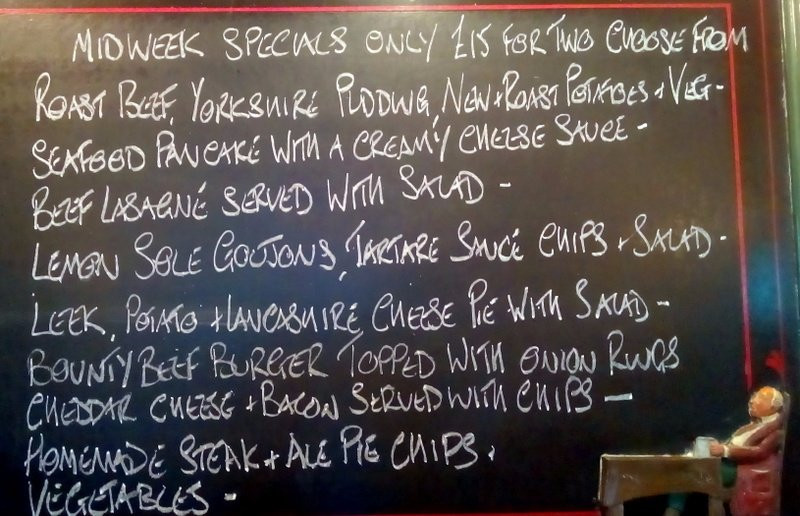 MIDWEEK SPECIALS ONLY £15 FOR TWO CHOOSE FROM
ROAST BEEF, YORKSHIRE PUDDING, NEW + ROAST POTATOES + VEG -
SEAFOOD PANCAKE WITH A CREAMY CHEESE SAUCE -
BEEF LASAGNE SERVED WITH SALAD -
LEMON SOLE GOUJONS, TARTARE SAUCE CHIPS + SALAD -
LEEK, POTATO + LANCASHIRE CHEESE PIE WITH SALAD -
BOUNTY BEEF BURGER TOPPED WITH ONION RINGS
CHEDDAR CHEESE + BACON SERVED WITH CHIPS -
HOMEMADE STEAK + ALE PIE CHIPS +
VEGETABLES -